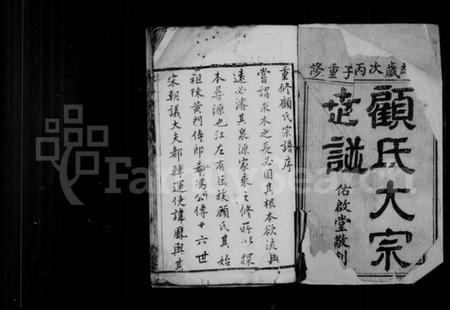 歲次丙子重修
顧氏大宗
世譜
佑啟堂敬刊
重修顧氏宗譜序
嘗謂求木之長必固其根本欲流與
遠必濬其泉源家乘之修所以探
本尋源也江左有巨族顧氏其始
祖陳黃門侍郎希馮公傳十六世
宋朝議大夫都轉運使諱鳳與其
FamilySearch